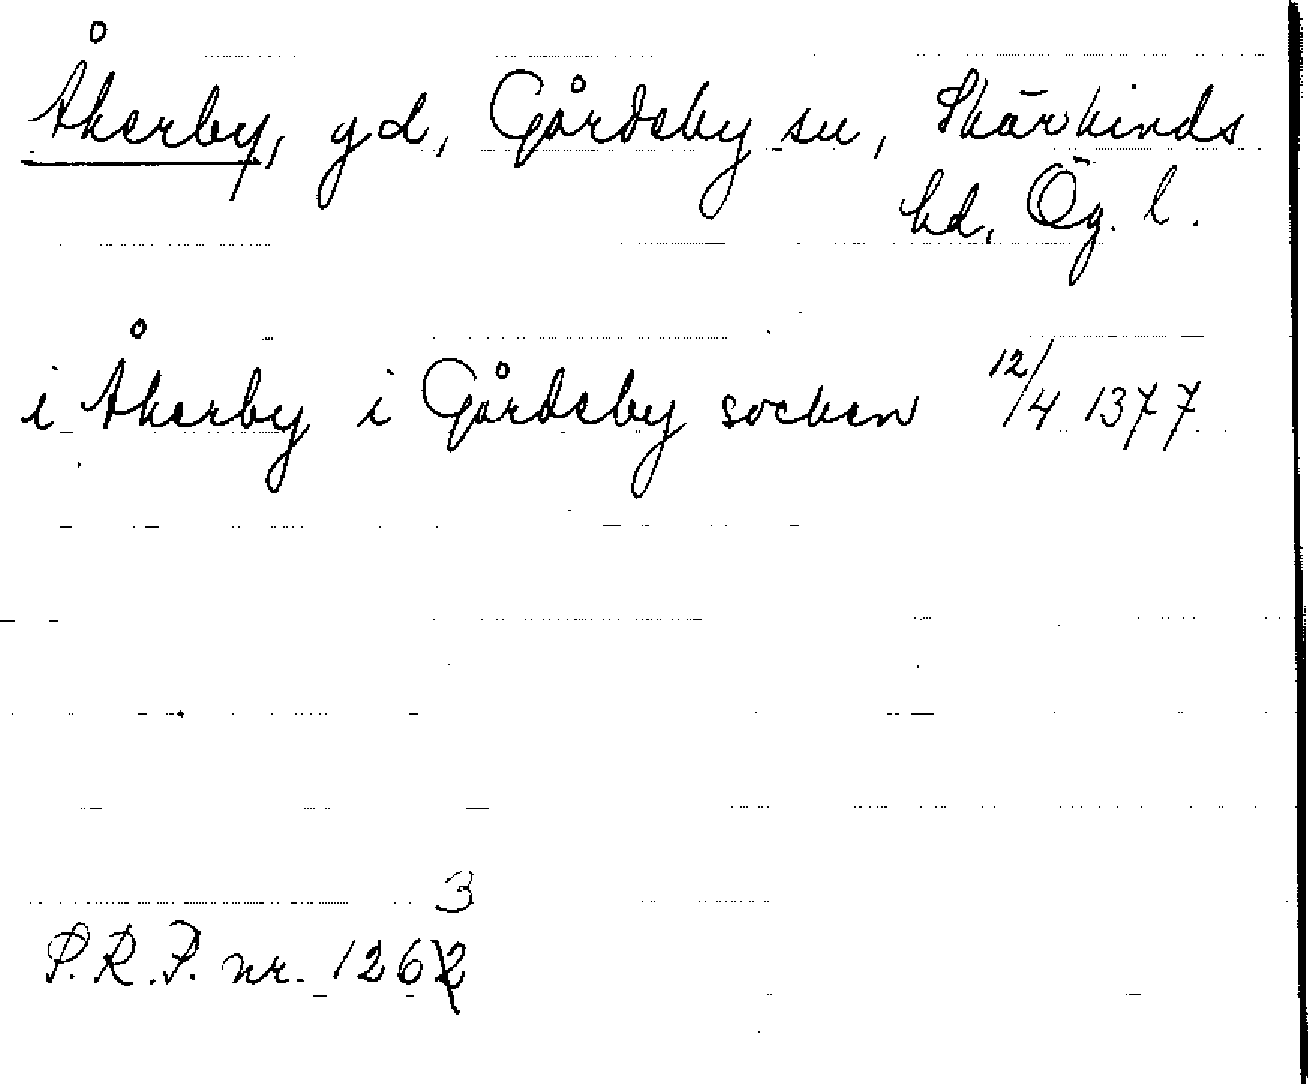 Åkerby, gd, Gårdeby sn, Skärkinds
hd, Ög. l.
i Åkerby i Gårdeby socken 12/4 1377
3
P.R.P. nr. 1262